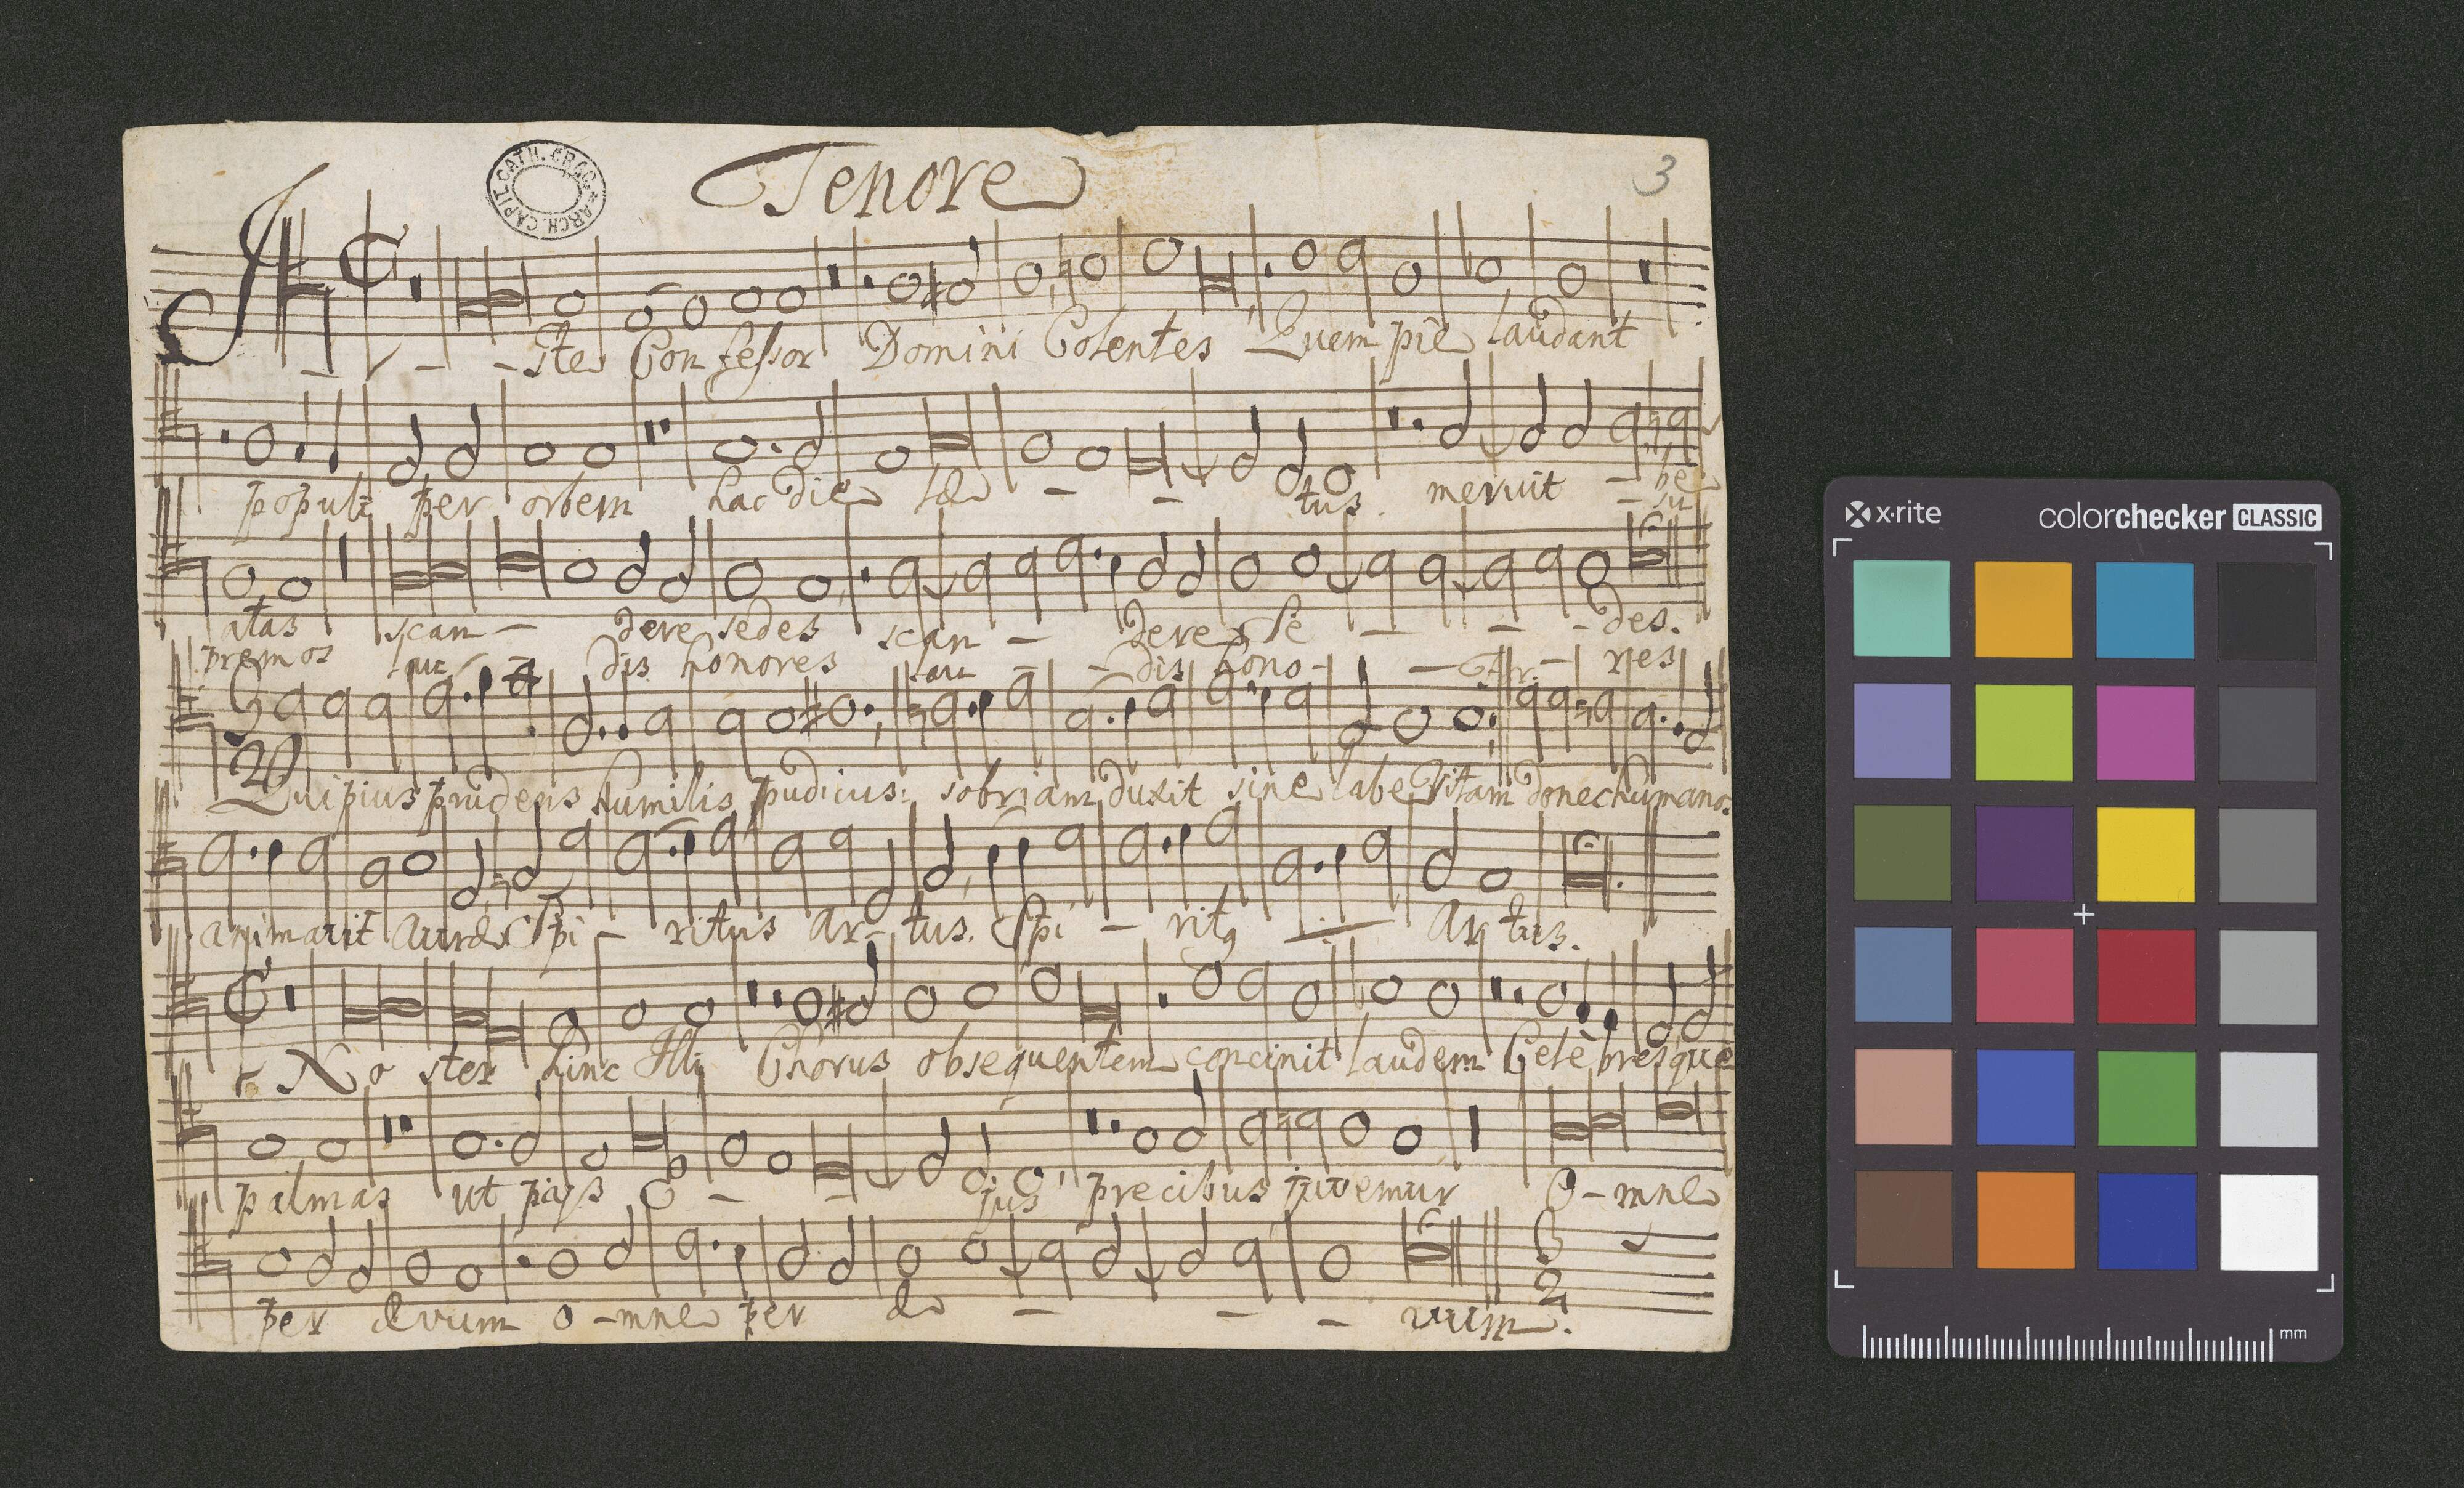 Tenore
3
ARCH. CAPIT. CATH. CRAC.
I - - ste Confessor Domini Colentes Quem pie laudant
populi per orbem hac die læ - - tus. meruit - be
- su
atas scan - dere sedes scan - dere se - - - des.
premos lau dis honores lau - dis hono - - res
2da
Qui pius prudens humilis pudicus: sobriam duxit sine labe Vitam donec humano.
animavit auræ Spi - ritus ar - tus. Spi - rit9 Ar tus.
No ster hinc Illi Chorus obsequentem concinit laudem Celebresque
palmas ut pijs E - - jus precibus juvemur O - mne
per ævum o - mne per æ - - - vum.
x-rite
colorchecker CLASSIC
mm